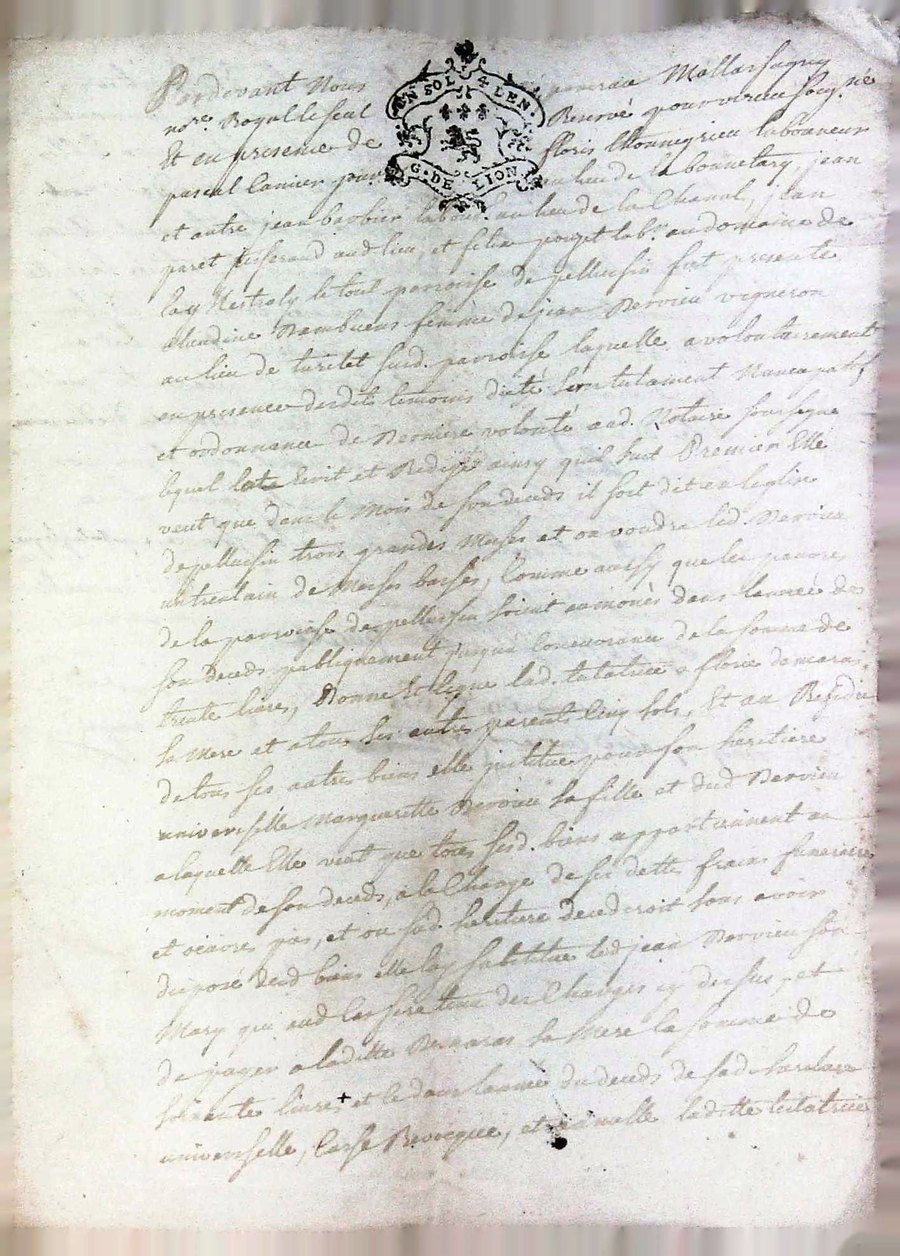 Pardevant Nous
UN SOL 4 DEN
G. DE LION
no.re Royal le seul Reservé pour
Et en presence de floris
pascal au lieu de la bonnetary, jean
et autre jean barbier au lieu de la Chanal, jean
paret tisserand aud lieu, et felix au domaine de
parroisse de pellussin fut presente
Claudine femme de jean Bervieu vigneron
au lieu de susd. parroisse laquelle a volontairement
en presence desdits temoins dicté son testament Nuncupatif
et ordonnance de Derniere volonté aud. Notaire soussigne
lequel l'at Ecrit et Redigé ainsy quil suit Premier Elle
veut que dans le Mois de son deceds il soit dit en leglise
de pellussin trois grandes Messes et led. Bervieu
un trentain de Messes basses, Comme aussy que les pauvres
de la parroisse de pellussin soient aumonés dans lannée de
son deceds publiquement jusqua Concurrance de la somme de
trente livres, Donne et legue lad. testatrice a florie
sa Mere et a tous ses autres parents Cinq sols, Et au Residu
de tous ses autres biens elle institue pour son heritiere
universelle Margueritte Bervieu sa fille et dud Bervieu
a laquelle Elle veut que tous sesd. biens appartiennent au
moment de son deceds, a la Charge de ses dettes fraix funeraires
et œuvres pies, et ou sad heritiere decederoit sans avoir
disposé desd biens elle luy substitue led jean Bervieu son
Mary qui aud Cas sera tenu des Charges cy dessus, et
de payer a laditte Demaras sa Mere la somme de
soixante livres + et le dans lannée du deceds de sad heritiere
universelle, Casse Revocque, et annulle laditte testatrice